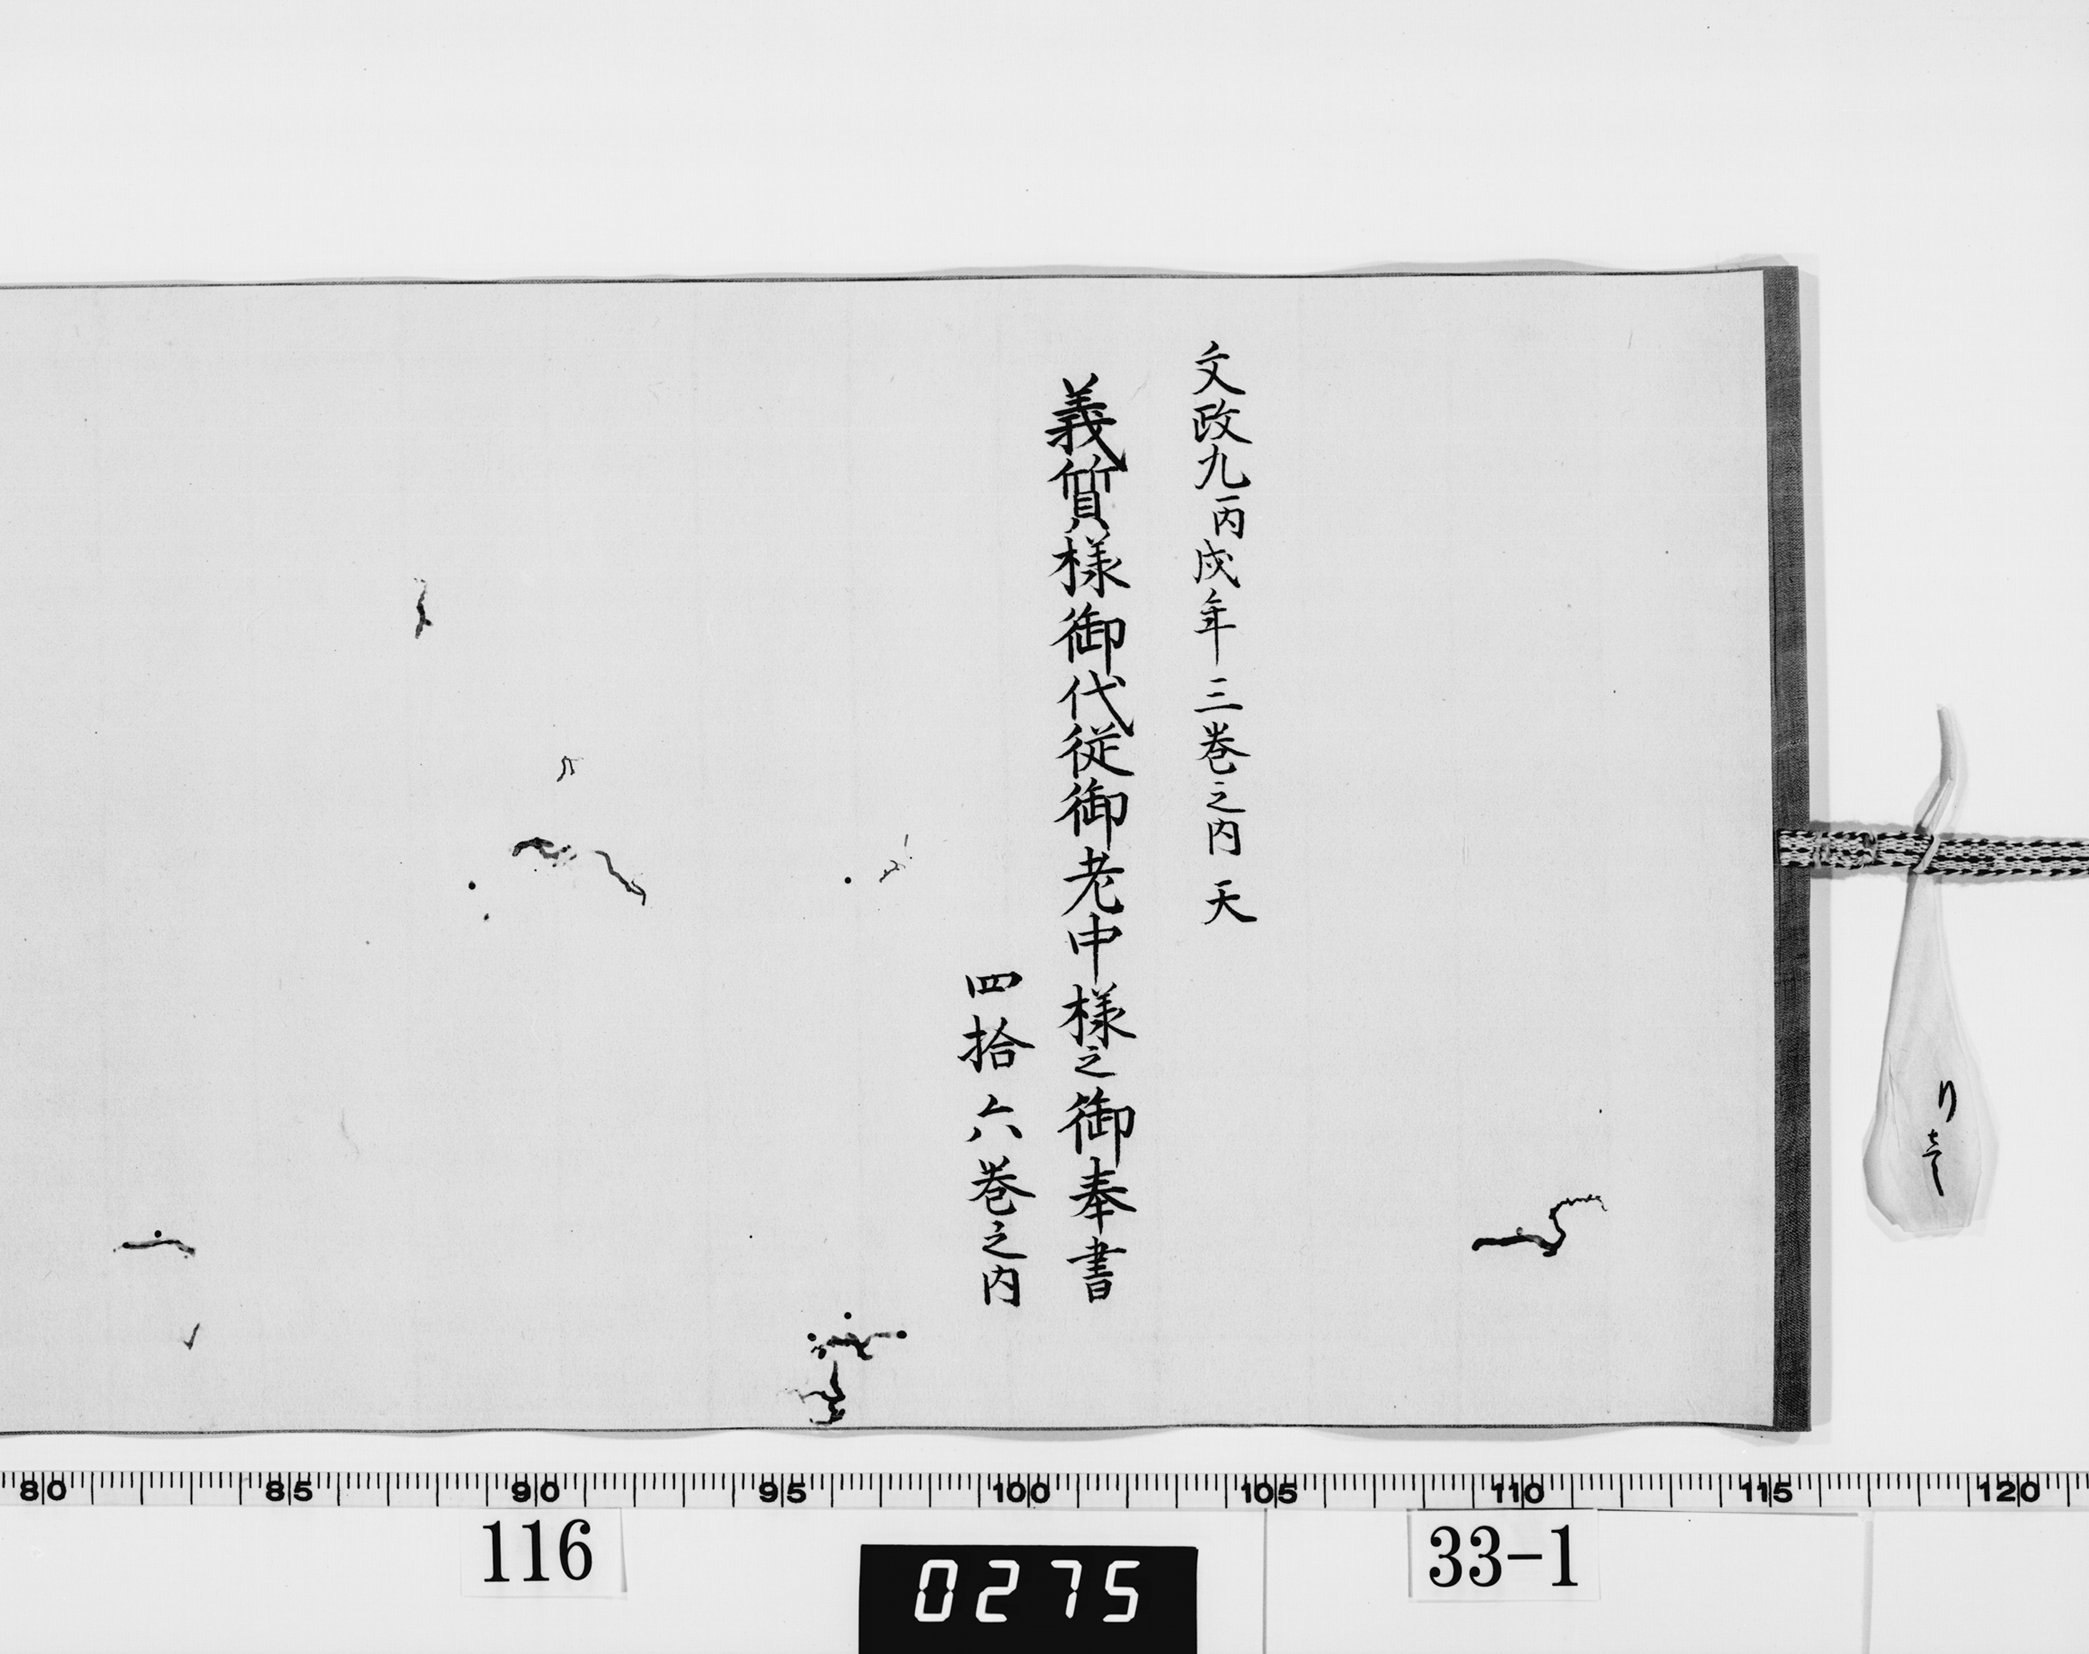 文政九丙戌年三巻之内 天
義質様御代従御老中様之御奉書
四拾六巻之内
80 85 90 95 100 105 110 115 120
116
0275
33-1